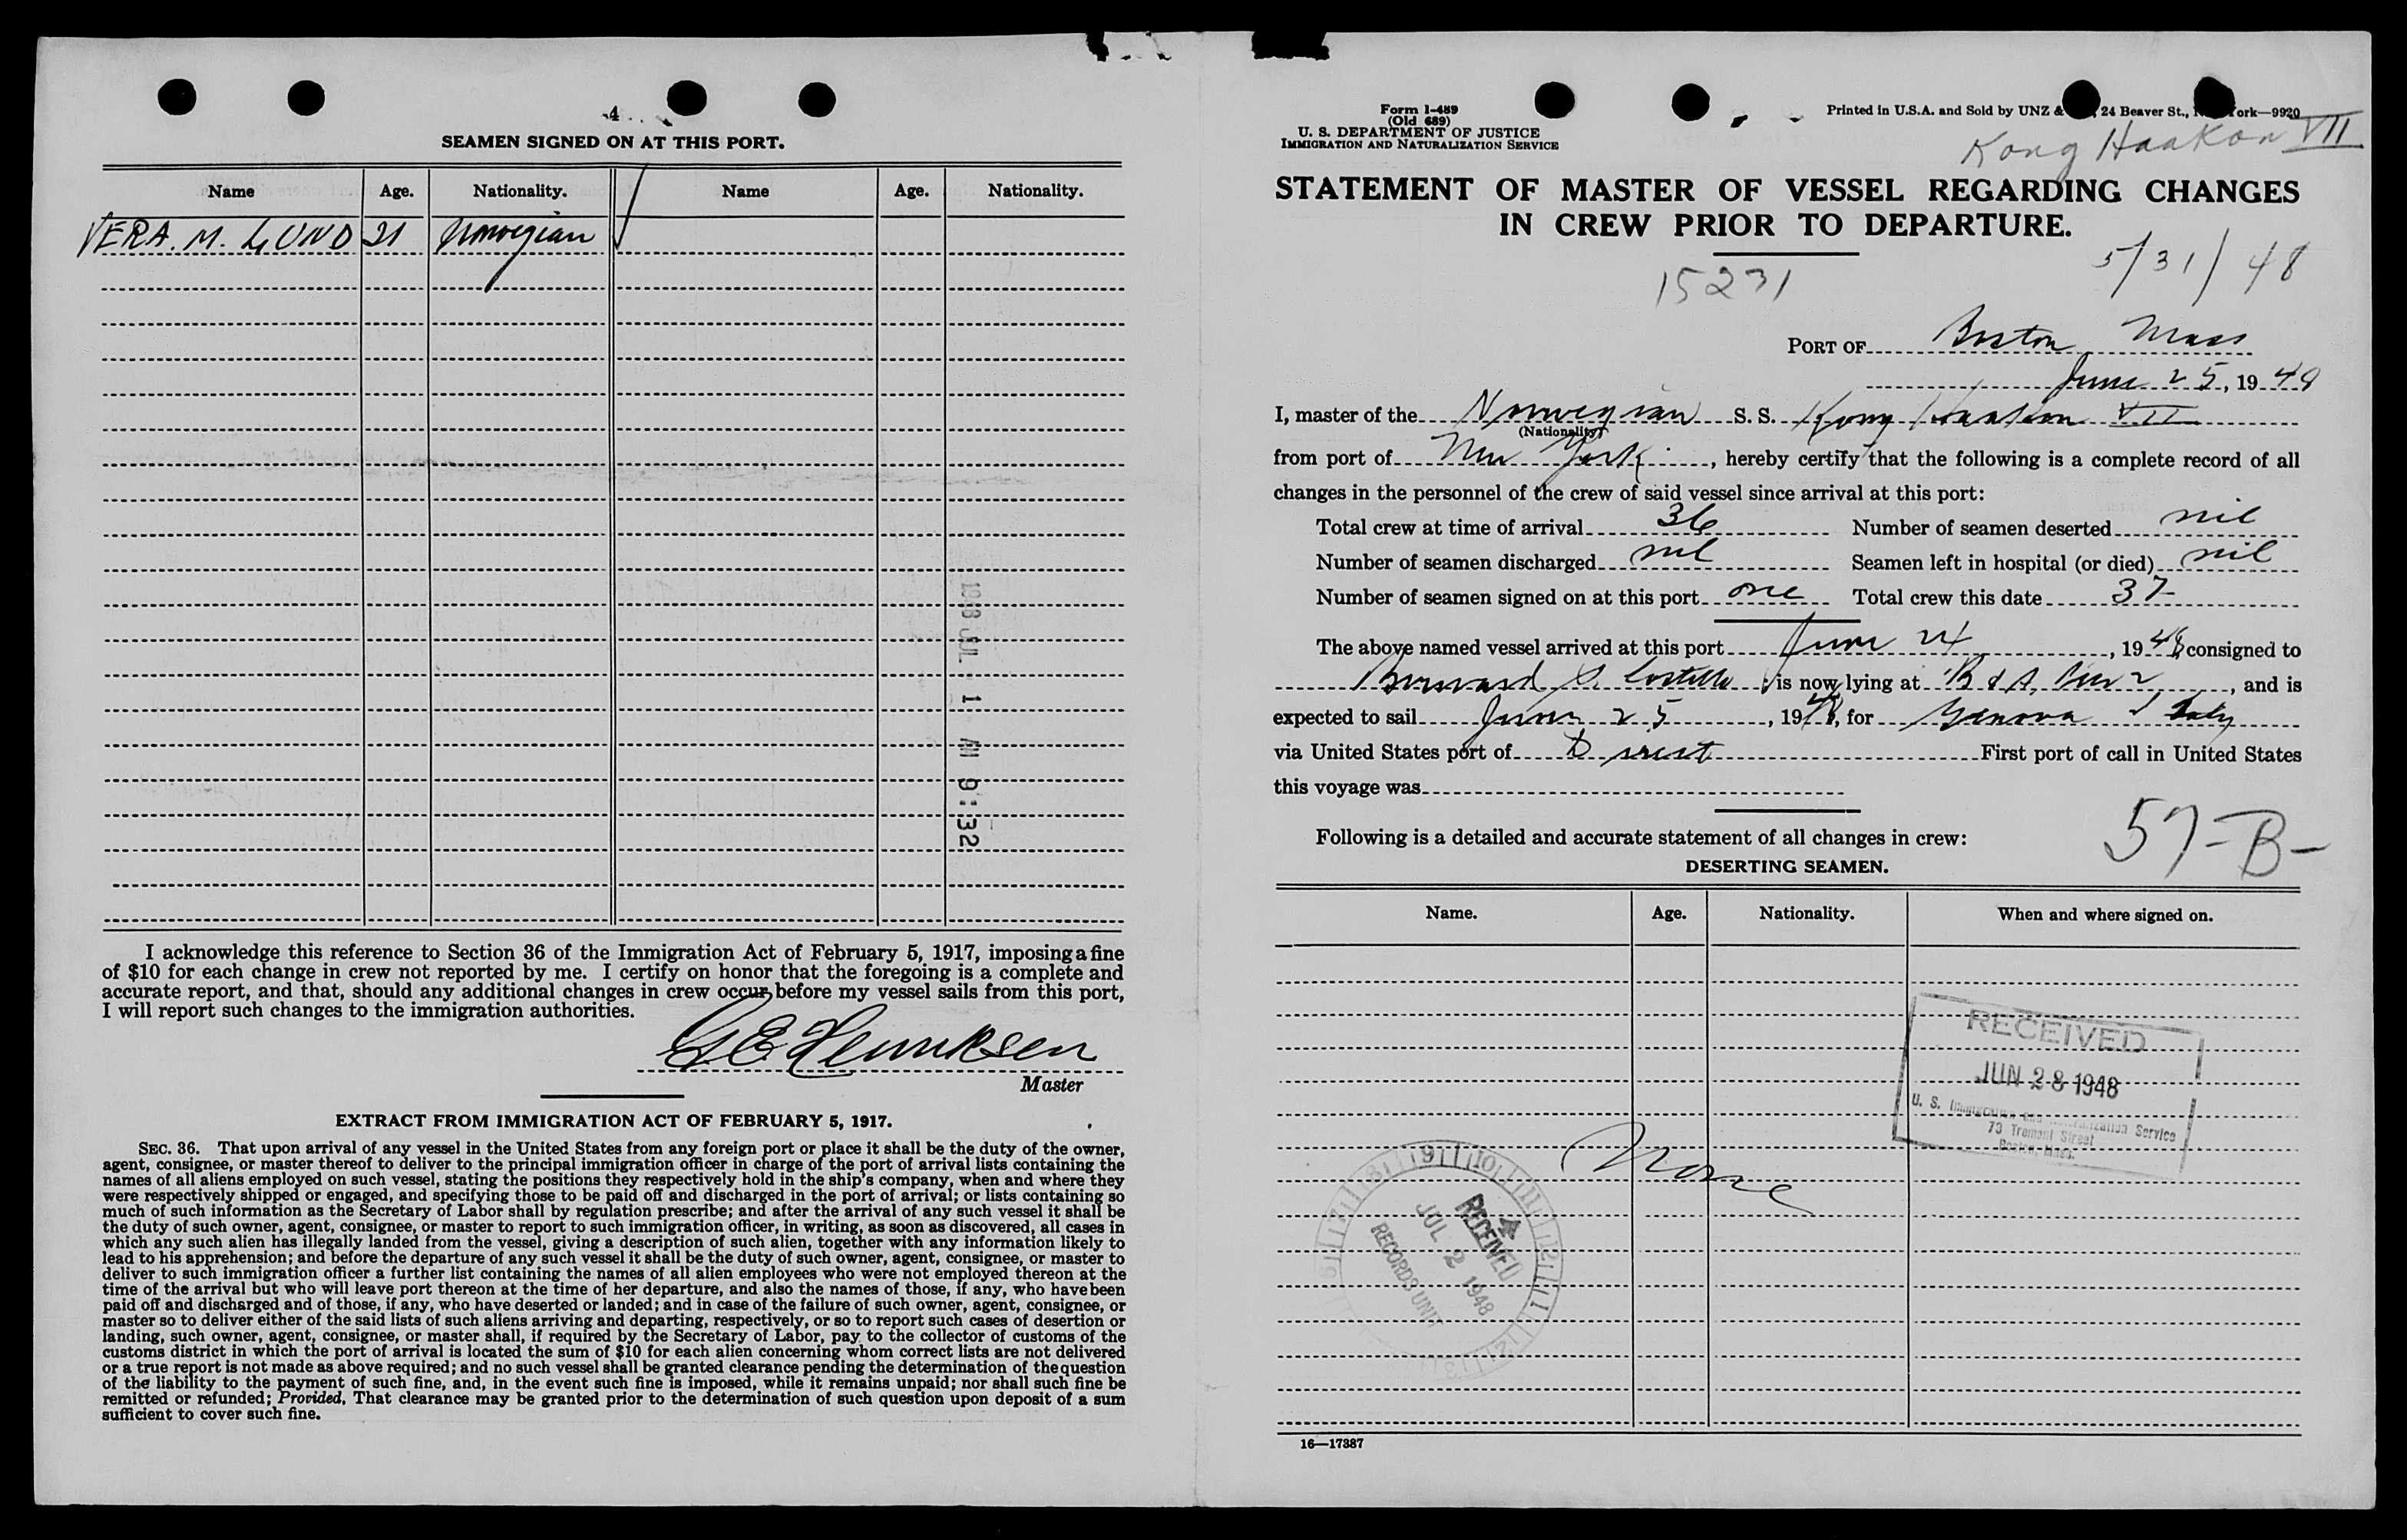 4
SEAMEN SIGNED ON AT THIS PORT.
Name Age. Nationality. Name Age. Nationality.
VERA. M. LUND 21 Norwegian
1948 JUL 1 AM 9:32
I acknowledge this reference to Section 36 of the Immigration Act of February 5, 1917, imposing a fine
of $10 for each change in crew not reported by me. I certify on honor that the foregoing is a complete and
accurate report, and that, should any additional changes in crew occur before my vessel sails from this port,
I will report such changes to the immigration authorities.
G E Henriksen
Master
EXTRACT FROM IMMIGRATION ACT OF FEBRUARY 5, 1917.
SEC. 36. That upon arrival of any vessel in the United States from any foreign port or place it shall be the duty of the owner,
agent, consignee, or master thereof to deliver to the principal immigration officer in charge of the port of arrival lists containing the
names of all aliens employed on such vessel, stating the positions they respectively hold in the ship's company, when and where they
were respectively shipped or engaged, and specifying those to be paid off and discharged in the port of arrival; or lists containing so
much of such information as the Secretary of Labor shall by regulation prescribe; and after the arrival of any such vessel it shall be
the duty of such owner, agent, consignee, or master to report to such immigration officer, in writing, as soon as discovered, all cases in
which any such alien has illegally landed from the vessel, giving a description of such alien, together with any information likely to
lead to his apprehension; and before the departure of any such vessel it shall be the duty of such owner, agent, consignee, or master to
deliver to such immigration officer a further list containing the names of all alien employees who were not employed thereon at the
time of the arrival but who will leave port thereon at the time of her departure, and also the names of those, if any, who have been
paid off and discharged and of those, if any, who have deserted or landed; and in case of the failure of such owner, agent, consignee, or
master so to deliver either of the said lists of such aliens arriving and departing, respectively, or so to report such cases of desertion or
landing, such owner, agent, consignee, or master shall, if required by the Secretary of Labor, pay to the collector of customs of the
customs district in which the port of arrival is located the sum of $10 for each alien concerning whom correct lists are not delivered
or a true report is not made as above required; and no such vessel shall be granted clearance pending the determination of the question
of the liability to the payment of such fine, and, in the event such fine is imposed, while it remains unpaid; nor shall such fine be
remitted or refunded; Provided, That clearance may be granted prior to the determination of such question upon deposit of a sum
sufficient to cover such fine.
Form I-489
(Old 689)
U. S. DEPARTMENT OF JUSTICE
IMMIGRATION AND NATURALIZATION SERVICE
Printed in U.S.A. and Sold by UNZ & 24 Beaver St., ork—9920
Kong Haakon VII
STATEMENT OF MASTER OF VESSEL REGARDING CHANGES
IN CREW PRIOR TO DEPARTURE.
5/31/48
15231
PORT OF Boston Mass
June 25, 1948
I, master of the Norwegian S. S. Kong Haakon VII
(Nationality)
from port of New York, hereby certify that the following is a complete record of all
changes in the personnel of the crew of said vessel since arrival at this port:
Total crew at time of arrival 36 Number of seamen deserted nil
Number of seamen discharged nil Seamen left in hospital (or died) nil
Number of seamen signed on at this port one Total crew this date 37
The above named vessel arrived at this port June 24, 1948, consigned to
Bernard S. Costello; is now lying at B & A Pier 2, and is
expected to sail June 25, 1948, for Genova Italy
via United States port of Direct First port of call in United States
this voyage was
Following is a detailed and accurate statement of all changes in crew:
57-B-
DESERTING SEAMEN.
Name. Age. Nationality. When and where signed on.
RECEIVED
JUN 28 1948
U. S. Immigration and Naturalization Service
73 Tremont Street
Boston, Mass.
None
RECEIVED
JUL 2 1948
RECORDS UNIT
16—17387